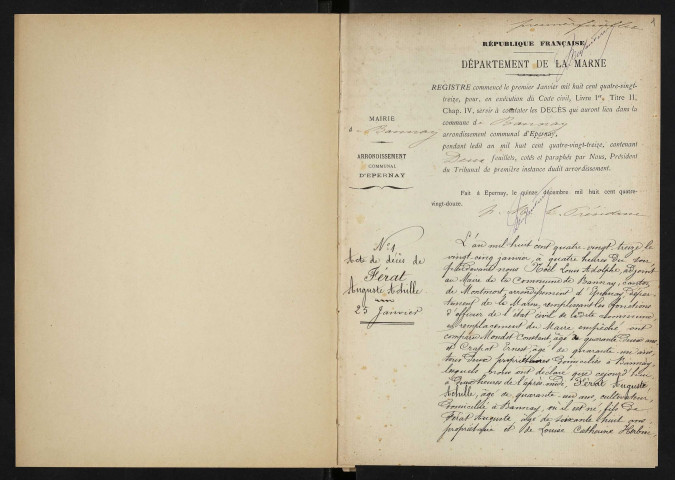 première feuille
1
RÉPUBLIQUE FRANÇAISE
DÉPARTEMENT DE LA MARNE
REGISTRE commencé le premier Janvier mil huit cent quatre-vingt-
treize, pour, en exécution du Code civil, Livre Ier, Titre II,
Chap. IV, servir à constater les DÉCÈS qui auront lieu dans la
commune de Bannay
arrondissement communal d'Epernay,
pendant ledit an mil huit cent quatre-vingt-treize, contenant
Deux feuillets, cotés et paraphés par Nous, Président
du Tribunal de première instance dudit arrondissement.
Fait à Epernay, le quinze décembre mil huit cent quatre-
vingt-douze.
Le Président
MAIRIE
de Bannay
ARRONDISSEMENT
COMMUNAL
D'EPERNAY
No 1
Acte de décès de
Férat
Auguste Achille
25 Janvier
L'an mil huit cent quatre-vingt treize le
vingt cinq janvier à quatre heures du soir
pardevant nous Noël Louis Adolphe, adjoint
au Maire de la Commune de Bannay, canton
de Montmort, arrondissement d'Epernay, dépar-
tement de la Marne, remplissant les fonctions
d'officier de l'état civil de la dite commune
en remplacement du Maire empêché ont
comparu Mondet Constant âgé de quarante deux ans
et Crapart Ernest âgé de quarante un ans
tous deux propriétaires domiciliés à Bannay,
lesquels nous ont déclaré que cejourd'hui
à deux heures de l'après midi, Férat Auguste
Achille, âgé de quarante un ans, cultivateur,
domicilié à Bannay, où il est né, fils de
Férat Auguste âgé de soixante huit ans
propriétaire et de Louise Catherine